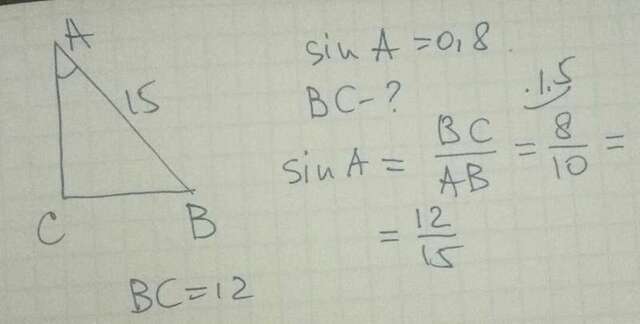 A
15
C
B
sin A = 0,8.
BC - ?
·1,5
sin A = BC/AB = 8/10 =
= 12/15
BC = 12